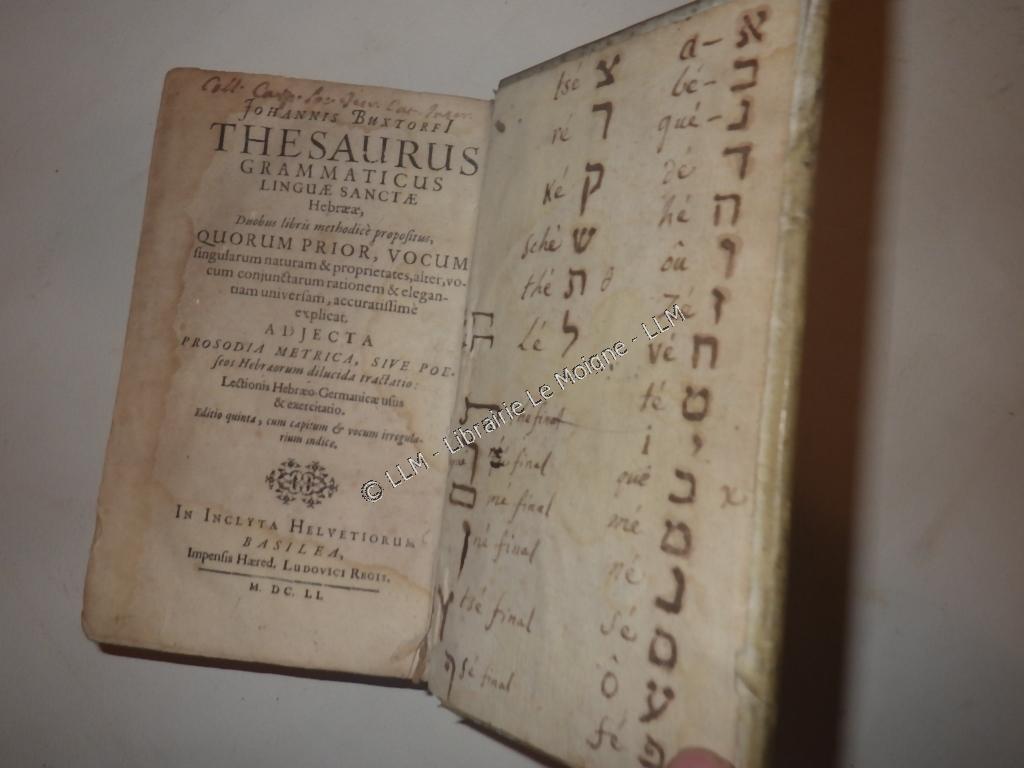 Coll. Camp.
JOHANNIS BUXTORFI
THESAURUS
GRAMMATICUS
LINGUÆ SANCTÆ
Hebrææ,
Duobus libris methodicè propositus,
QUORUM PRIOR, VOCUM
singularum naturam & proprietates, alter, vo-
cum conjunctarum rationem & elegan-
tiam universam, accuratissimè
explicat.
ADJECTA
PROSODIA METRICA, SIVE POE-
seos Hebræorum dilucida tractatio:
Lectionis Hebræo-Germanicæ usus
& exercitatio.
Editio quinta, cum capitum & vocum irregula-
rium indice.
IN INCLYTA HELVETIORUM
BASILEA,
Impensis Hæred. LUDOVICI REGIS.
M. DC. LI.
a- א
bé- ב
gué- ג
dé ד
hé ה
oû ו
zé ז
vé ח
té ט
i י
qué כ
mé מ
né נ
sé ס
ó ע
fé פ
tsé צ
ré ר
ké ק
sché ש
thé ת
lé ל
final
final
ם mé final
ן né final
ץ tsé final
final
© LLM - Librairie Le Moigne - LLM